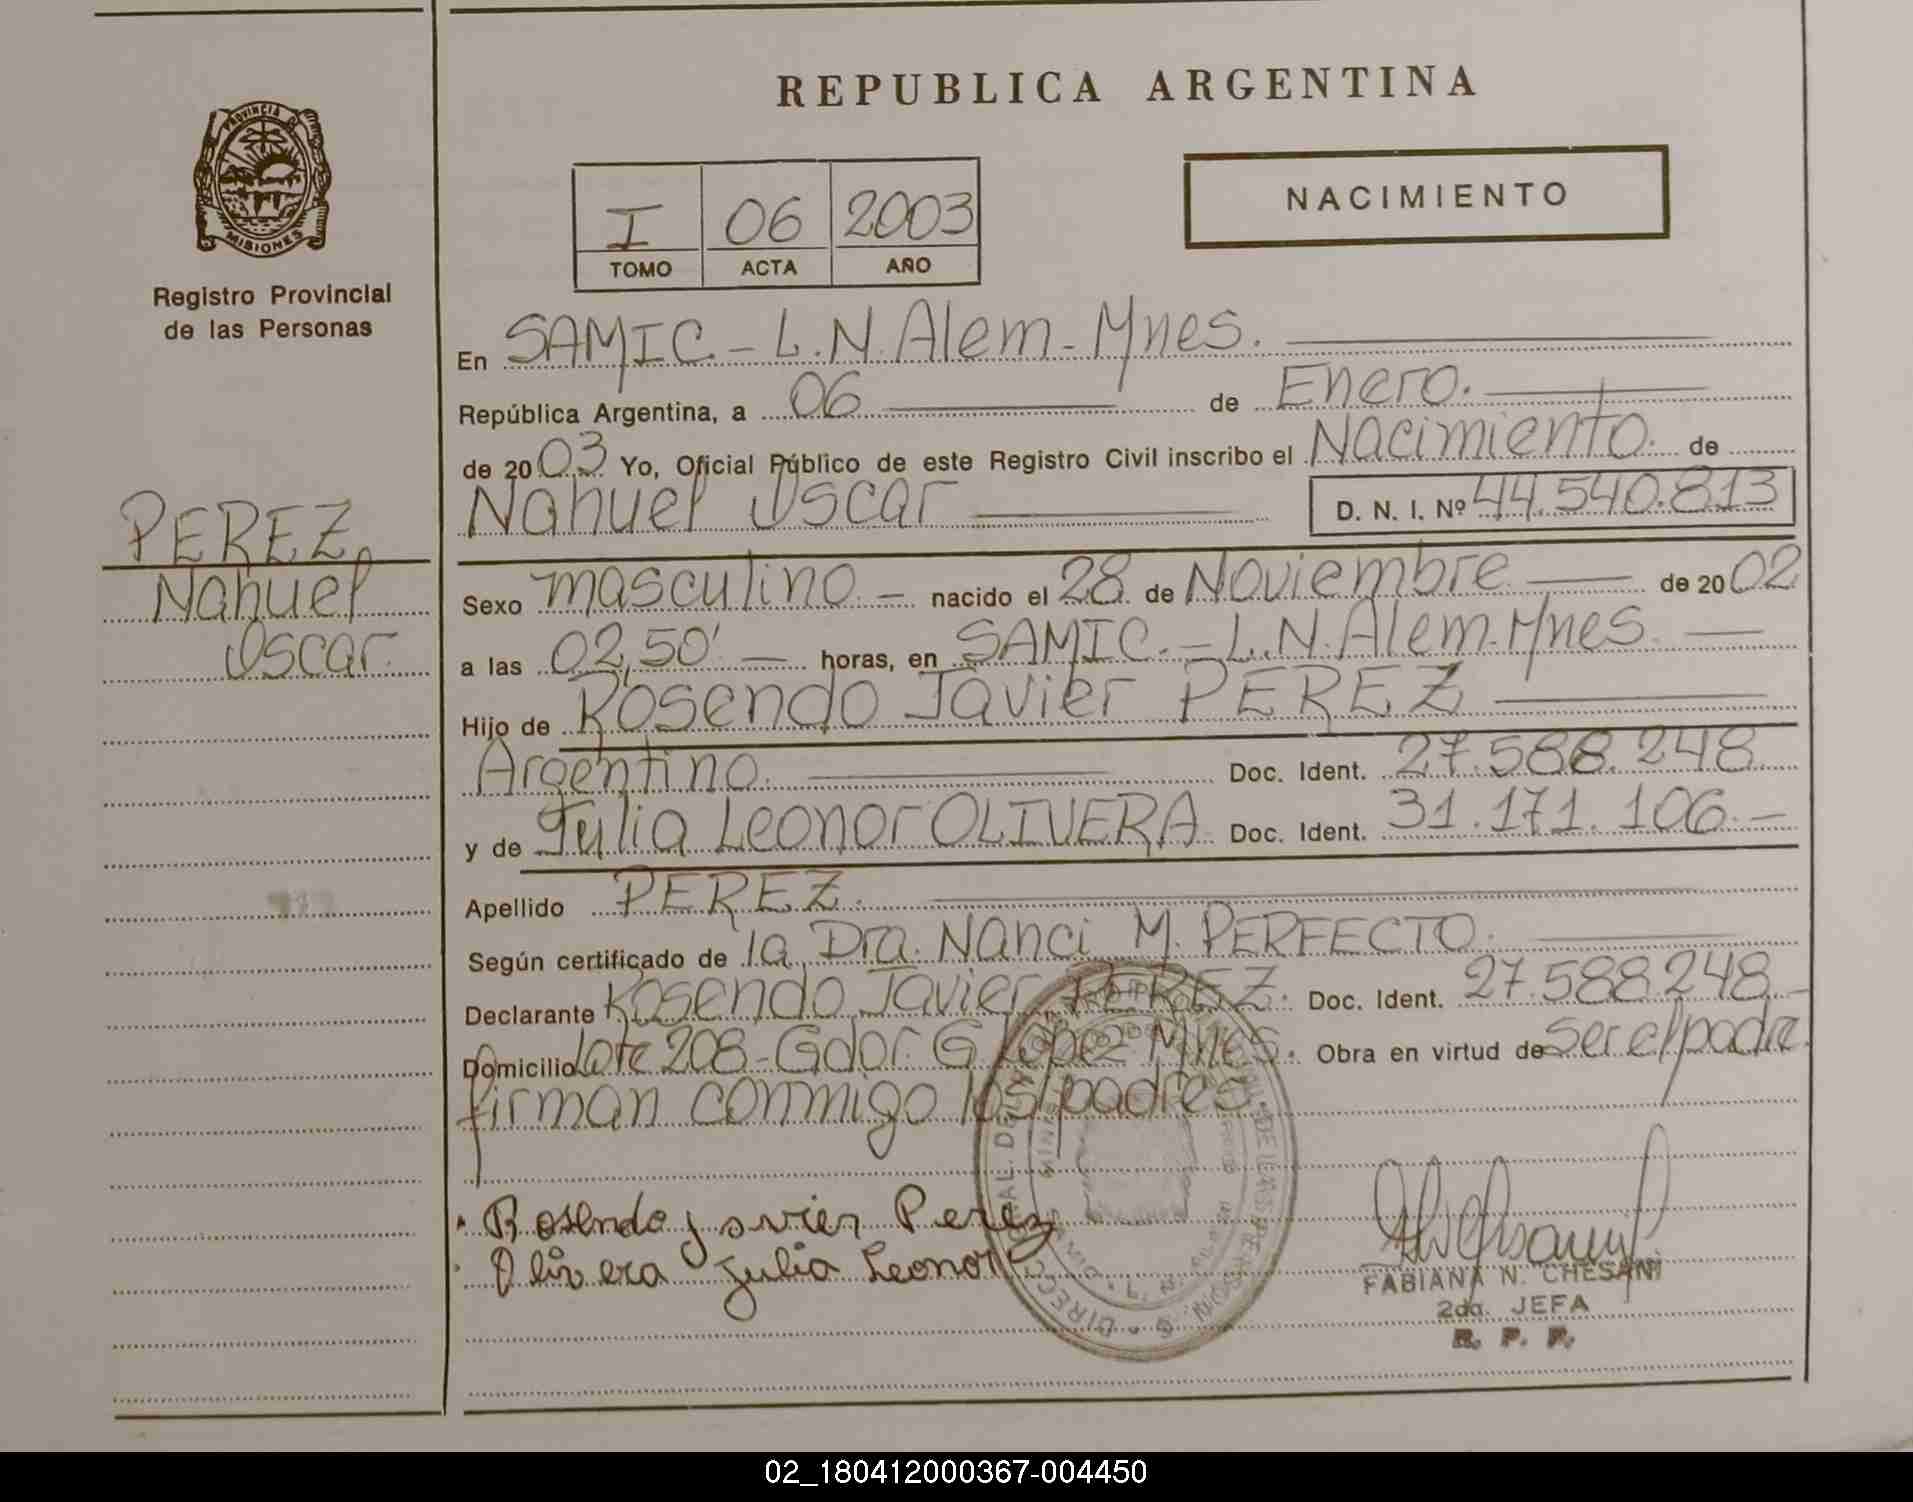 REPUBLICA ARGENTINA
PROVINCIA DE
MISIONES
Registro Provincial
de las Personas
I 06 2003
TOMO ACTA AÑO
NACIMIENTO
En SAMIC.-L.N.Alem-Mnes.
República Argentina, a 06 de Enero.
de 2003 Yo, Oficial Público de este Registro Civil inscribo el Nacimiento. de
Nahuel Oscar D. N. I. Nº 44.540.813
PEREZ
Nahuel
Oscar.
Sexo masculino. nacido el 28 de Noviembre de 2002
a las 02,50' horas, en SAMIC.-L.N.Alem-Mnes.
Hijo de Rosendo Javier PEREZ
Argentino. Doc. Ident. 27.588.248
y de Julia Leonor OLIVERA Doc. Ident. 31.171.106.-
Apellido PEREZ.
Según certificado de la Dra. Nanci M. PERFECTO.
Declarante Rosendo Javier PEREZ. Doc. Ident. 27.588.248.-
Domicilio Lote 208-Gdor. G. Lopez Mnes. Obra en virtud de ser el padre.
firman conmigo los padres
Rosendo Javier Perez
Olivera Julia Leonor
FABIANA N. CHESANI
2da. JEFA
R. P. P.
02_180412000367-004450